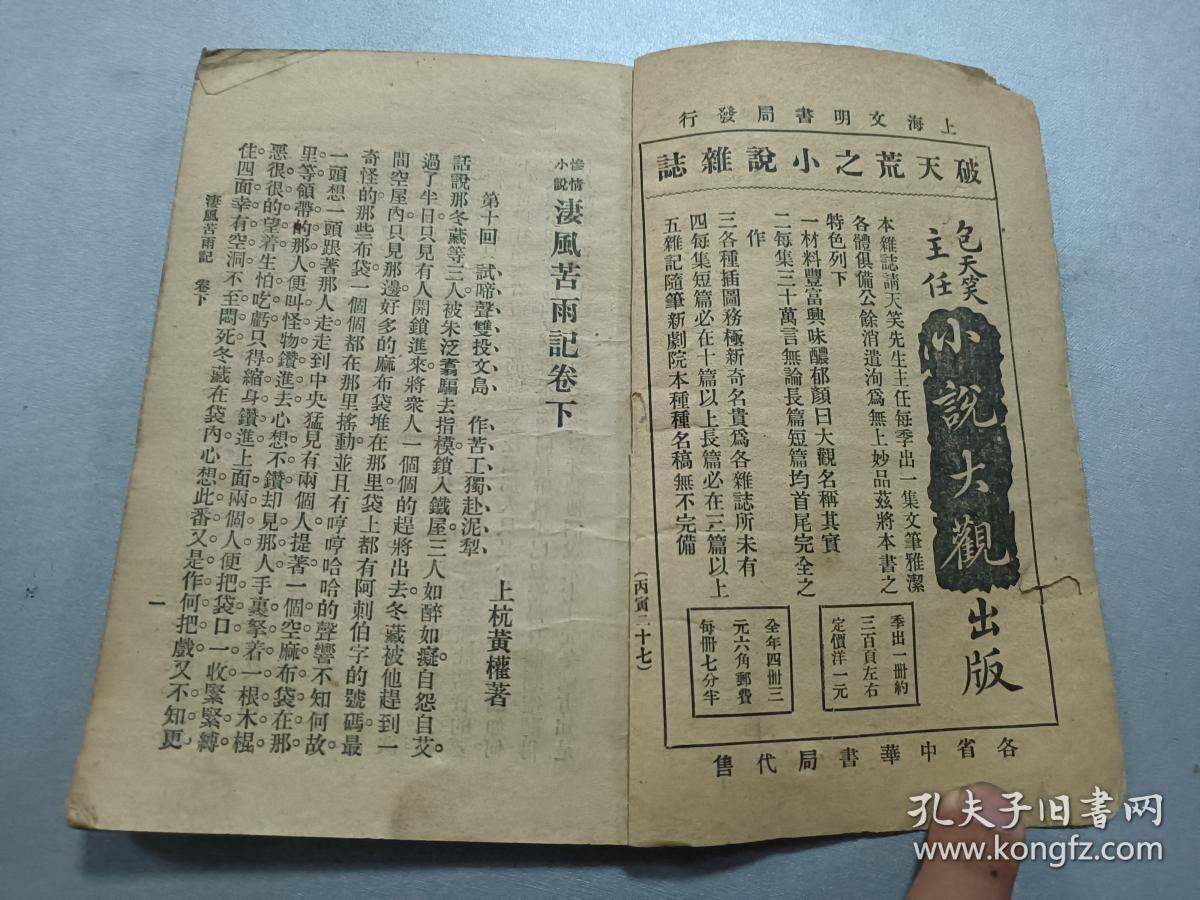 上海文明書局發行
破天荒之小說雜誌
包天笑
主任
小說大觀
出版
本雜誌請天笑先生主任每季出一集文筆雅潔
各體俱備公餘消遣洵爲無上妙品茲將本書之
特色列下
一材料豐富興味醲郁顏曰大觀名稱其實
二每集三十萬言無論長篇短篇均首尾完全之
作
三各種插圖務極新奇名貴爲各雜誌所未有
四每集短篇必在十篇以上長篇必在三篇以上
五雜記隨筆新劇院本種種名稿無不完備
季出一冊約
三百頁左右
定價洋一元
全年四冊三
元六角郵費
每冊七分半
各省中華書局代售
(丙寅二十七)
慘情
小說
淒風苦雨記卷下
上杭黃權著
第十回 試啼聲雙投文島 作苦工獨赴泥犁
話說那冬藏等三人被朱泛翥騙去指模鎖入鐵屋三人如醉如癡自怨自艾
過了半日只見有人開鎖進來將衆人一個個的趕將出去冬藏被他趕到一
間空屋內只見那邊好多的麻布袋堆在那里袋上都有阿剌伯字的號碼最
奇怪的那些布袋一個個都在那里搖動並且有哼哼哈哈的聲響不知何故
一頭想一頭跟著那人走走到中央猛見有兩個人提著一個空麻布袋在那
里等領帶的那人便叫怪物鑽進去心想不鑽却見那人手裏拏着一根木棍
惡很很的望着生怕吃虧只得縮身鑽進上面兩個人便把袋口一收緊緊縛
住四面幸有空洞不至悶死冬藏在袋內心想此番又是作何把戲又不知更
淒風苦雨記 卷下
一
孔夫子旧书网
www.kongfz.com